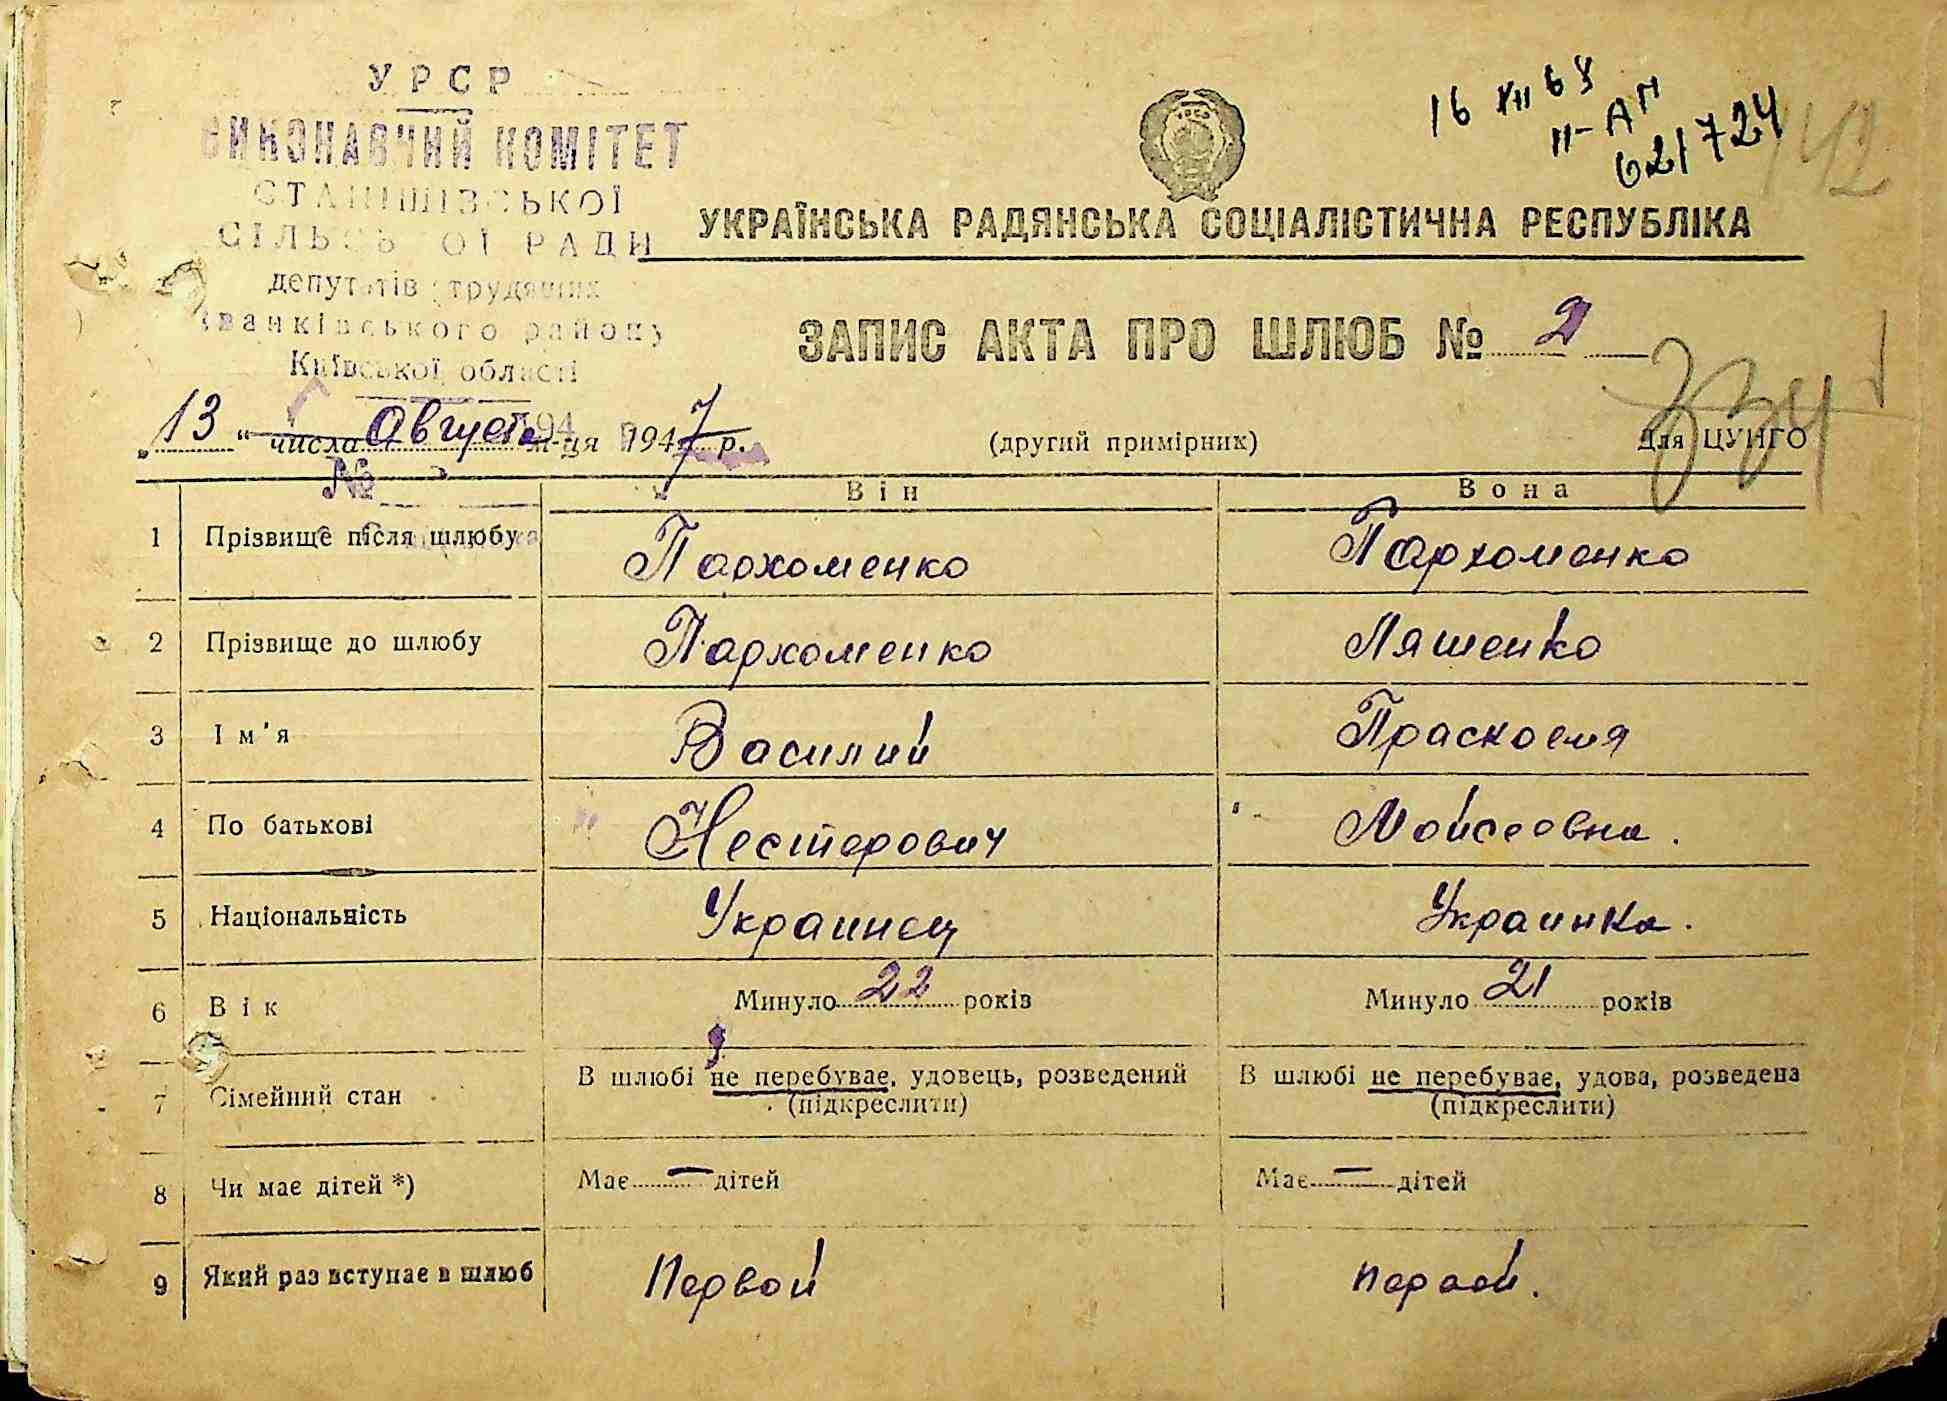 УРСР
ВИКОНАВЧИЙ КОМІТЕТ
СТАНІШІВСЬКОЇ
СІЛЬСЬКОЇ РАДИ
депутатів трудящих
Іванківського району
Київської області
16 XII 68
II-АП
621724
142
УКРАЇНСЬКА РАДЯНСЬКА СОЦІАЛІСТИЧНА РЕСПУБЛІКА
ЗАПИС АКТА ПРО ШЛЮБ № 2
„13“ числа Август м-ця 1947 р.
(другий примірник)
Для ЦУНГО
№
Він Вона
1 Прізвище після шлюбу Пархоменко Пархоменко
2 Прізвище до шлюбу Пархоменко Ляшенко
3 Ім'я Василий Прасковия
4 По батькові Нестерович Мойсеовна.
5 Національність Украинец Украинка.
6 Вік Минуло 22 років Минуло 21 років
7 Сімейний стан В шлюбі не перебуває, удовець, розведений В шлюбі не перебуває, удова, розведена
(підкреслити) (підкреслити)
8 Чи має дітей *) Має — дітей Має — дітей
9 Який раз вступає в шлюб Первой первой.